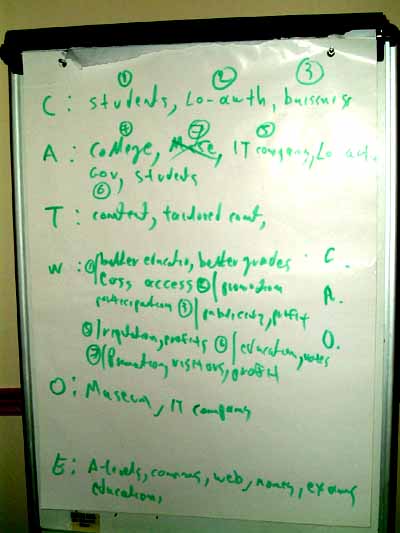 ① ② ③
C: students, Lo-auth, buisness
④ ⑦ ⑤
A: college, Muse, IT company, Lo-aut.
Gov, students
⑥
T: content, tailored cont,
W: ① / better educatio, better grades C.
/ Easy access ② / promotion A.
participation ③ / publicity, profit
⑤ / reputation, profits ⑥ / education, votes O.
⑦ / Promotion, visitors, profit
O: Museum, IT company
E: A-levels, web, money,
education,